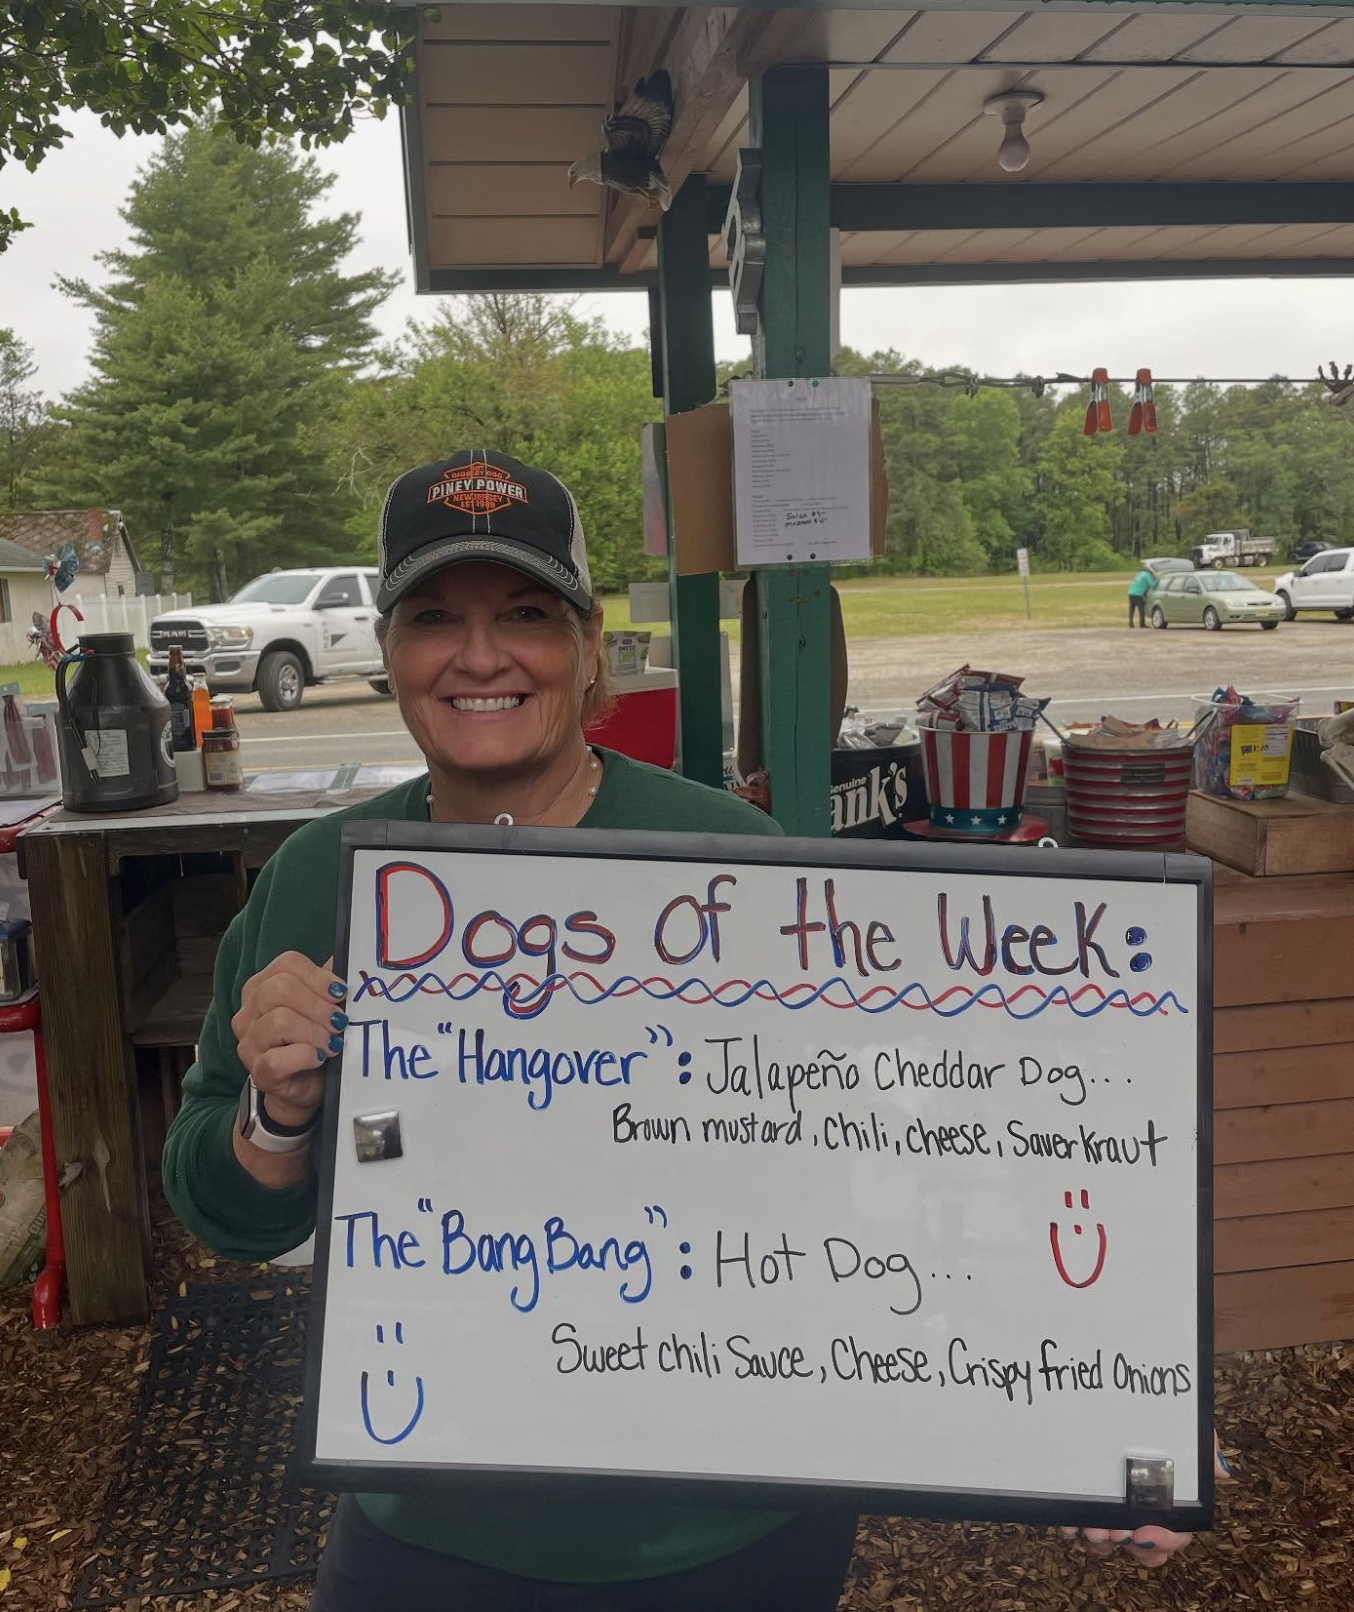 PINEY POWER
NEW JERSEY
EST 1989
Salsa $9-
Genuine
ank's
RAM
Dogs of the Week:
The "Hangover": Jalapeño Cheddar Dog...
Brown mustard, chili, cheese, Sauerkraut
The "Bang Bang": Hot Dog...
Sweet chili Sauce, Cheese, Crispy fried Onions